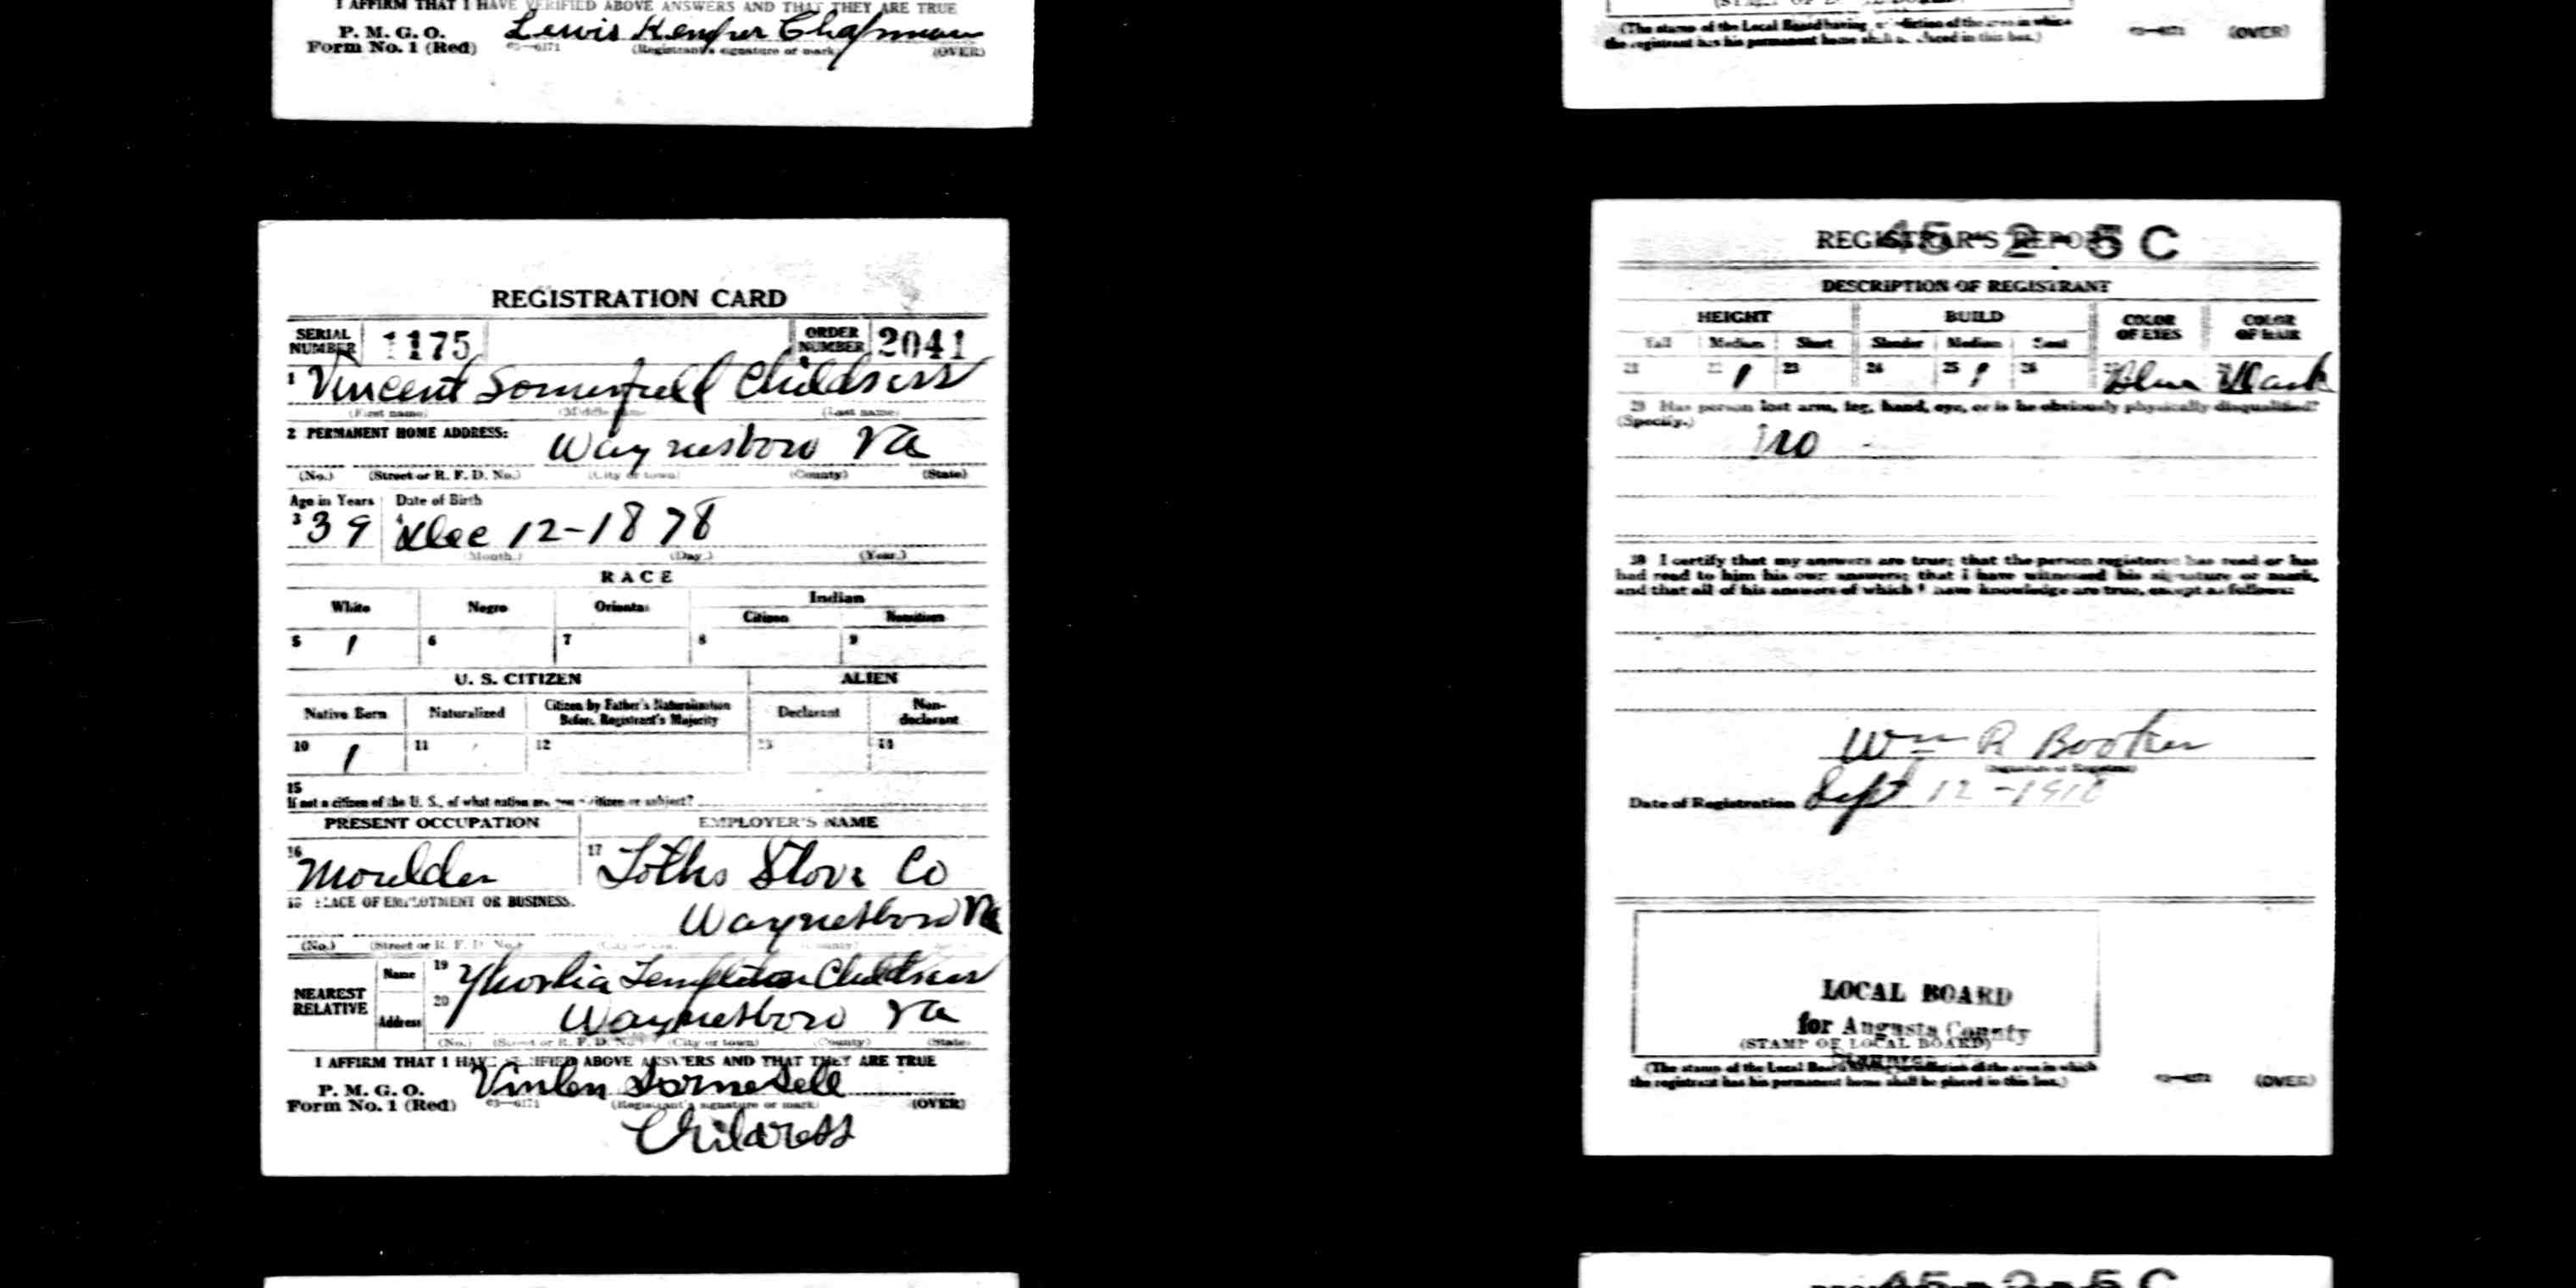 I AFFIRM THAT I HAVE VERIFIED ABOVE ANSWERS AND THAT THEY ARE TRUE
P. M. G. O.
Form No. 1 (Red)
Lewis Kemper Chapman
03—6171 (Registrant's signature or mark) (OVER)
(The stamp of the Local Board having jurisdiction of the area in which
the registrant has his permanent home shall be placed in this box.)
03—6171 (OVER)
REGISTRATION CARD
SERIAL NUMBER 1175 ORDER NUMBER 2041
1 Vincent Somerfield Childress
(First name) (Middle name) (Last name)
2 PERMANENT HOME ADDRESS:
Waynesboro Va
(No.) (Street or R. F. D. No.) (City or town) (County) (State)
Age in Years Date of Birth
3 39 4 Dec 12-1878
(Month.) (Day.) (Year.)
RACE
White Negro Oriental Indian
Citizen Noncitizen
5 1 6 7 8 9
U. S. CITIZEN ALIEN
Native Born Naturalized Citizen by Father's Naturalization Before Registrant's Majority Declarant Non-declarant
10 1 11 12 13 14
15
If not a citizen of the U. S., of what nation are you a citizen or subject?
PRESENT OCCUPATION EMPLOYER'S NAME
16 Moulder 17 Loths Stove Co
18 PLACE OF EMPLOYMENT OR BUSINESS.
Waynesboro Va
(No.) (Street or R. F. D. No.) (City or town) (County)
NEAREST RELATIVE
Name 19 Templeton Childress
Address 20 Waynesboro Va
(No.) (Street or R. F. D. No.) (City or town) (County) (State)
I AFFIRM THAT I HAVE VERIFIED ABOVE ANSWERS AND THAT THEY ARE TRUE
P. M. G. O.
Form No. 1 (Red)
03—6171 (Registrant's signature or mark) (OVER)
Childress
REGISTRAR'S REPORT
45-2-5 C
DESCRIPTION OF REGISTRANT
HEIGHT BUILD COLOR OF EYES COLOR OF HAIR
Tall Medium Short Slender Medium Stout
21 22 1 23 24 25 1 26 27 Blue 28 Dark
29 Has person lost arm, leg, hand, eye, or is he obviously physically disqualified?
(Specify.)
no
30 I certify that my answers are true; that the person registered has read or has
had read to him his own answers; that I have witnessed his signature or mark,
and that all of his answers of which I have knowledge are true, except as follows:
Wm R Booker
(Signature of Registrar)
Date of Registration Sept 12-1918
LOCAL BOARD
for Augusta County
(STAMP OF LOCAL BOARD)
(The stamp of the Local Board having jurisdiction of the area in which
the registrant has his permanent home shall be placed in this box.)
03—6171 (OVER)
45-2-5 C